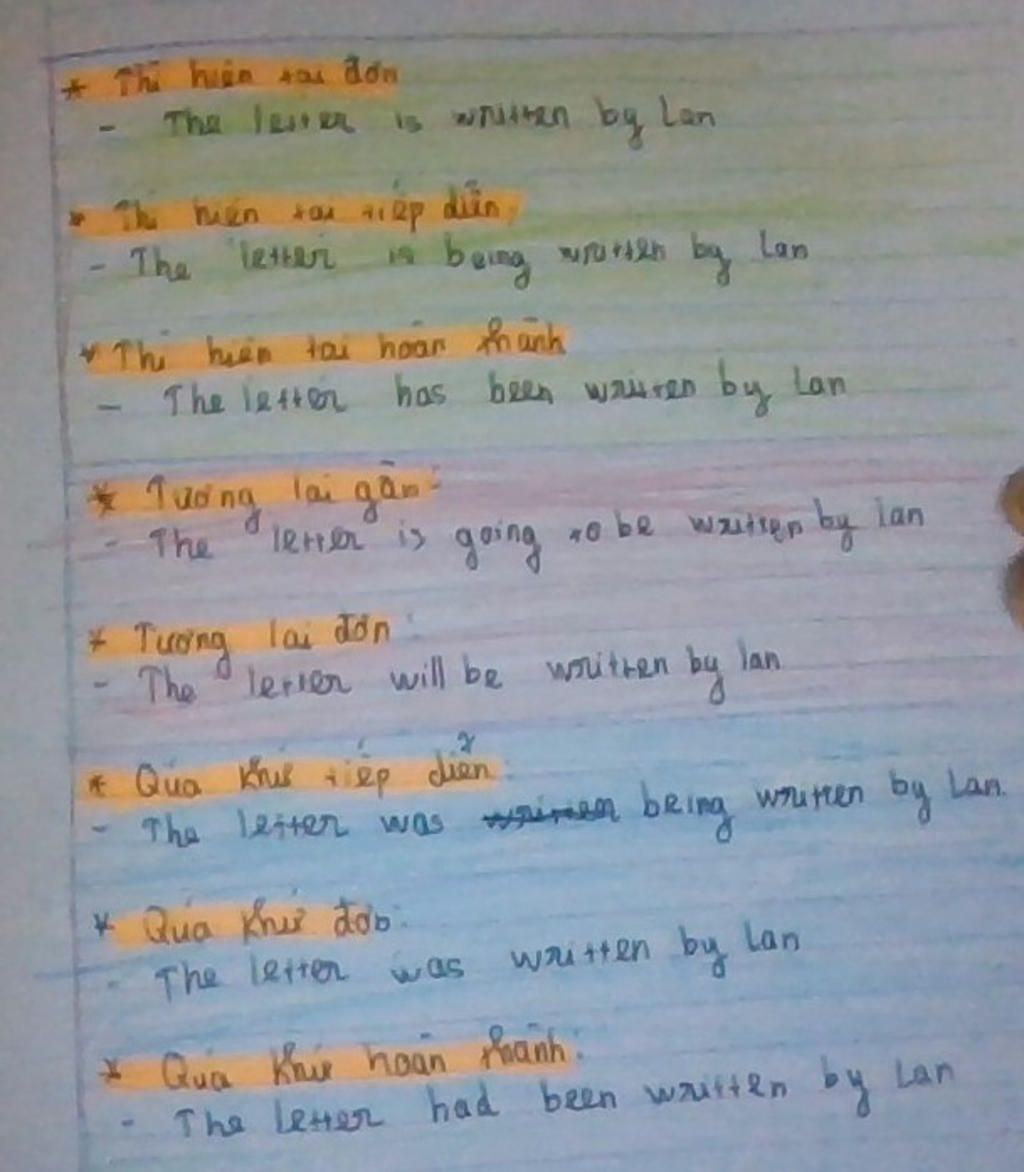 * Thì hiện tại đơn
- The letter is written by Lan
* Thì hiện tại tiếp diễn:
- The letter is being written by Lan
* Thì hiện tại hoàn thành
- The letter has been written by Lan
* Tương lai gần:
- The letter is going to be written by lan
* Tương lai đơn:
- The letter will be written by lan
* Qúa khứ tiếp diễn:
- The letter was written being written by Lan.
* Qúa khứ đơn:
- The letter was written by Lan
* Qúa khứ hoàn thành:
- The letter had been written by Lan